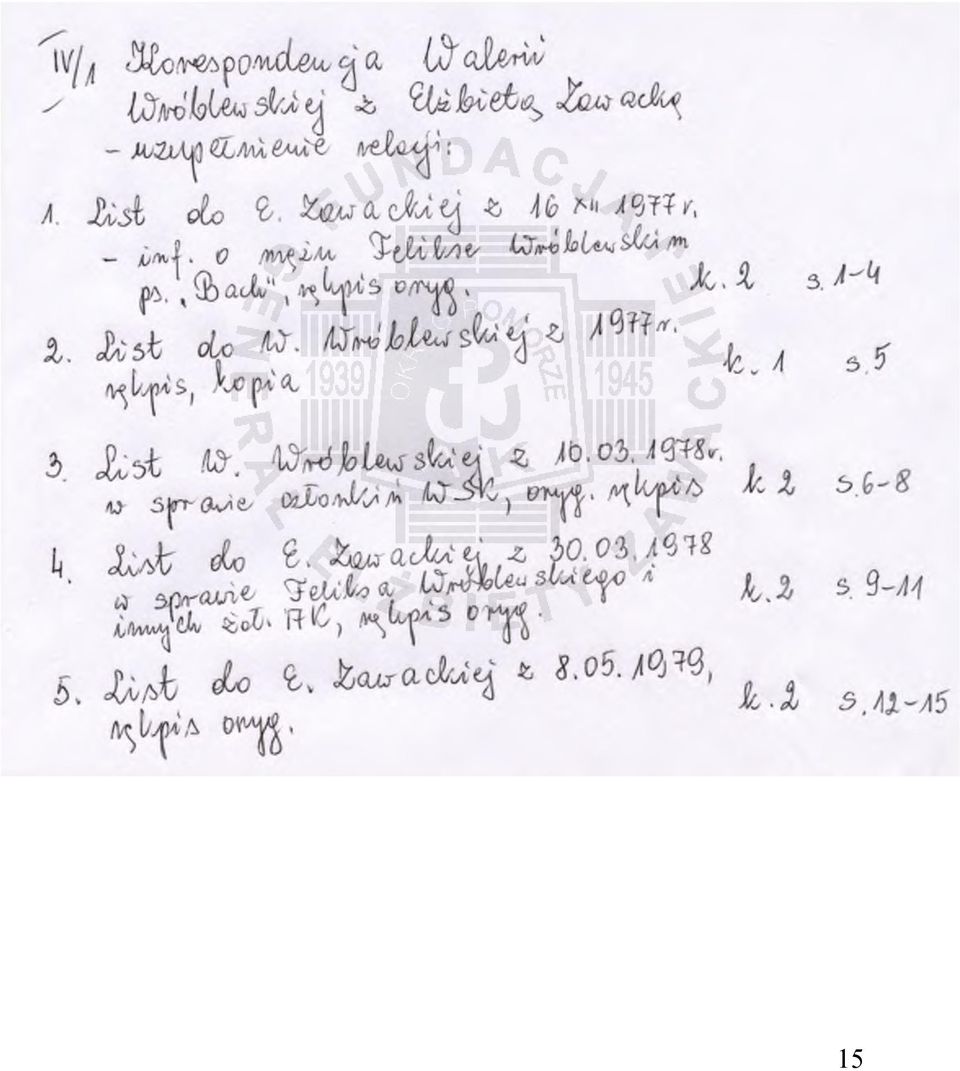 IV/1 Korespondencja Walerii
Wróblewskiej z Elżbietą Zawacką
- uzupełnienie relacji:
1. List do E. Zawackiej z 16 XII 1977 r.
- inf. o mężu Feliksie Wróblewskim
ps. "Bach", rękpis oryg. k. 2 s. 1-4
2. List do W. Wróblewskiej z 1977 r.
rękpis, kopia k. 1 s. 5
3. List W. Wróblewskiej z 10.03.1978r.
w sprawie członkiń WSK, oryg. rękpis k 2 s. 6-8
4. List do E. Zawackiej z 30.03.1978
w sprawie Feliksa Wróblewskiego i
innych żoł. AK, rękpis oryg. k. 2 s. 9-11
5. List do E. Zawackiej z 8.05.1979,
rękpis oryg. k. 2 s. 12-15
FUNDACJA GENERAŁ ELŻBIETY ZAWACKIEJ
POMORZE
1939 1945
15